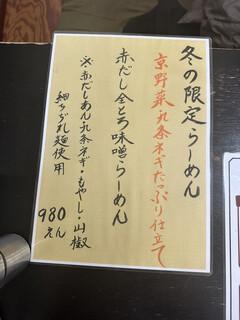 冬の限定らーめん
京野菜九条ネギたっぷり仕立て
赤だし全とろ味噌らーめん
※・赤だしあん・九条ネギ・もやし・山椒
細ちぢれ麺使用
980えん